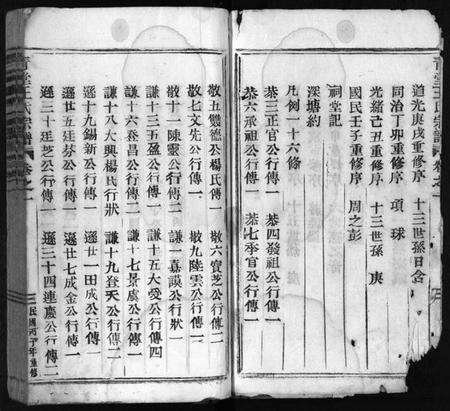 道光庚戌重修序 十三世孫日含
同治丁卯重修序 項球
光緒己丑重修序 十三世孫庚
國民壬子重修序 周之彭
祠堂記
凡例一十六條
深塘約
恭三正官公行傳一 恭四發祖公行傳一
恭六承祖公行傳一 恭七季官公行傳一
敬五雙德公楊氏傳一 敬六寶芝公行傳一
敬七文先公行傳一 敬九陸雲公行傳二
敬十一陳靈公行傳二 謙一嘉謨公行狀一
謙十三五盈公行傳二 謙十五大受公行傳四
謙十六春昌公行傳二 謙十七景虞公行傳一
謙十八大興楊氏行狀 謙十九登天公行傳二
遜十九錫新公行傳一 遜廿一田成公行傳一
遜廿五廷芬公行傳一 遜廿七成金公行傳一
遜三十廷芝公行傳一 遜三十四連慶公行傳二
王氏宗譜 卷之一
民國丙子年重修